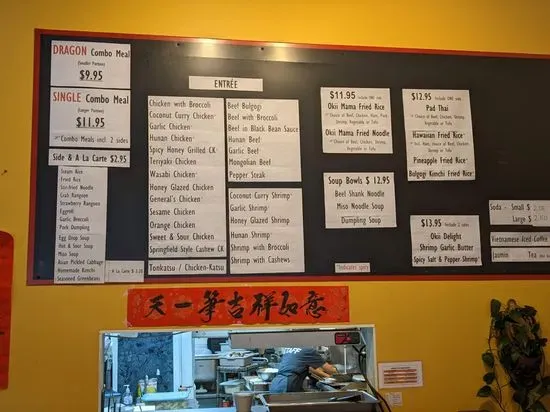 DRAGON Combo Meal
(Smaller Portion)
$9.95
SINGLE Combo Meal
(Larger Portion)
$11.95
*Combo Meals incl. 2 sides
Side & A La Carte $2.95
Steam Rice
Fried Rice
Stir-fried Noodle
Crab Rangoon
Strawberry Rangoon
Eggroll
Garlic Broccoli
Pork Dumpling
Egg Drop Soup
Hot & Sour Soup
Miso Soup
Asian Pickled Cabbage
Homemade Kimchi
Seasoned Greenbeans
ENTRÉE
Chicken with Broccoli
Coconut Curry Chicken*
Garlic Chicken*
Hunan Chicken*
Spicy Honey Grilled CK*
Teriyaki Chicken
Wasabi Chicken*
Honey Glazed Chicken
General's Chicken*
Sesame Chicken
Orange Chicken
Sweet & Sour Chicken
Springfield Style Cashew CK
Tonkatsu / Chicken-Katsu
A La Carte $
Beef Bulgogi
Beef with Broccoli
Beef in Black Bean Sauce
Hunan Beef*
Garlic Beef*
Mongolian Beef
Pepper Steak
Coconut Curry Shrimp*
Garlic Shrimp*
Honey Glazed Shrimp
Hunan Shrimp*
Shrimp with Broccoli
Shrimp with Cashews
$11.95 Include ONE side
Okii Mama Fried Rice
*Choice of Beef, Chicken, Ham, Pork, Shrimp, Vegetable or Tofu
Okii Mama Fried Noodle
*Choice of Beef, Chicken, Shrimp, Vegetable or Tofu
Soup Bowls $ 12.95
Beef Shank Noodle
Miso Noodle Soup
Dumpling Soup
*Indicates spicy
$12.95 Include ONE side
Pad Thai
*Choice of Beef, Chicken, Pork, Shrimp, Vegetable or Tofu
Hawaiian Fried Rice*
*Incl. Ham, Chicken & Pineapple
Pineapple Fried Rice*
Bulgogi Kimchi Fried Rice*
$13.95 Include 2 sides
Okii Delight
Shrimp Garlic Butter
Spicy Salt & Pepper Shrimp*
Soda - Small $
Large $
Vietnamese Iced Coffee
Jasmin Tea
天一筆吉祥如意